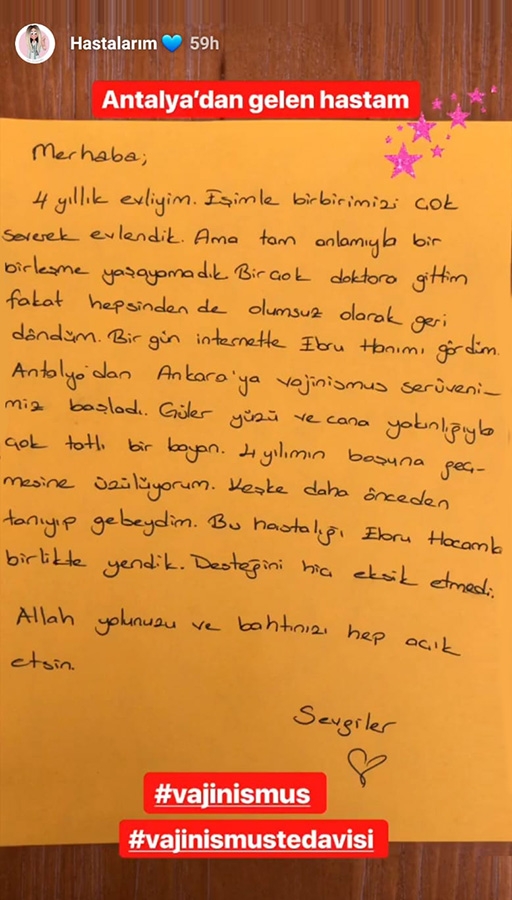 Hastalarım 💙 59h
Antalya'dan gelen hastam
Merhaba;
4 yıllık evliyim. Eşimle birbirimizi çok
severek evlendik. Ama tam anlamıyla bir
birleşme yaşayamadık. Bir çok doktora gittim
fakat hepsinden de olumsuz olarak geri
döndüm. Bir gün internette Ebru Hanımı gördüm.
Antalya'dan Ankara'ya vajinismus serüveni-
miz başladı. Güler yüzü ve cana yakınlığıyla
çok tatlı bir bayan. 4 yılımın boşuna geç-
mesine üzülüyorum. Keşke daha önceden
tanıyıp gebeydim. Bu hastalığı Ebru Hocamla
birlikte yendik. Desteğini hiç eksik etmedi.
Allah yolunuzu ve bahtınızı hep açık
etsin.
Sevgiler
#vajinismus
#vajinismustedavisi